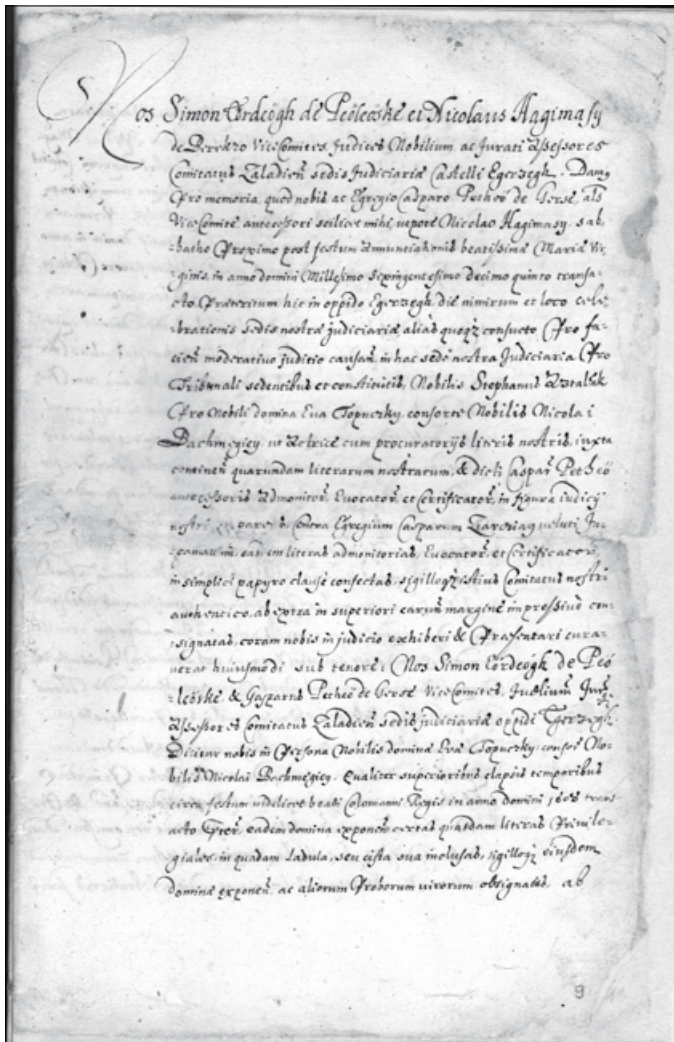 Nos Simon Eördeögh de Peöleöske et Nicolaus Hagimasy
de Berekzo ViceComites, Judices Nobilium ac Jurati Assessores
Comitatus Zaladien̄ sedis Judiciariæ Castelli Egerzegh. Damꝫ
Pro memoria, quod nobis ac Egregio Casparo Petheö de Gerse, als
ViceComite antecessori scilicet mihi, utpote Nicolao Hagimasy. sab-
batho Proximo post festum Annunciationis beatissimæ Mariæ Vir-
ginis, in anno domini Millesimo Sexingentesimo decimo quinto transa-
cto, Præteritum hic in oppido Egerzegh, die nimirum et loco cele-
brationis sedis nostræ judiciariæ alias quoqꝫ consueto Pro fa-
cien̄ moderativo juditio causan̄, in hac sede nostra Judiciaria Pro
Tribunali sedentibus et constitutis, Nobilis Stephanus
Pro Nobili domina Eva Topuczky, consorte Nobilis Nicolai
Bachmegiey, ut Actrice cum procuratorijs literis nostris, iuxta
continen̄ quarundam literarum nostrarum, & dicti Caspar̄ Petheö
antecessoris Admonitor̄, Evocator̄, et Certificator̄, in figura iudicij
nostri, Egregium Casparum veluti In-
literas admonitorias, Evocator̄, et Certificator̄,
in simplici papyro clause confectas, sigilloqꝫ istius Comitatus nostri
authentico, ab extra in superiori earum̄ margine impressive con-
signatas, coram nobis in judicio exhiberi & Præsentari cura-
verat huiusmodi sub tenore: Nos Simon Eördeögh de Peö-
leöske, & Gasparus Petheö de Gerse ViceComites, Judlium̄ Jur̄
Assessores Comitatus Zaladien̄ sedis judiciariæ oppidi Egerzegh.
Dicitur nobis in Persona Nobilis dominæ Evæ Topuczky, consor̄ No-
bilis Nicolai Bachmegiey. Qualiter superioribus elapsis temporibus
circa festum videlicet beati Colomanni Regis in anno domini 1608 trans-
acto Præter̄, eadem domina exponen̄ certas quasdam literas Privile-
giales, in quadam Ladula, seu cista sua inclusas, sigilloqꝫ eiusdem
dominæ exponen̄, ac aliorum Proborum virorum obsignatas, ab
9